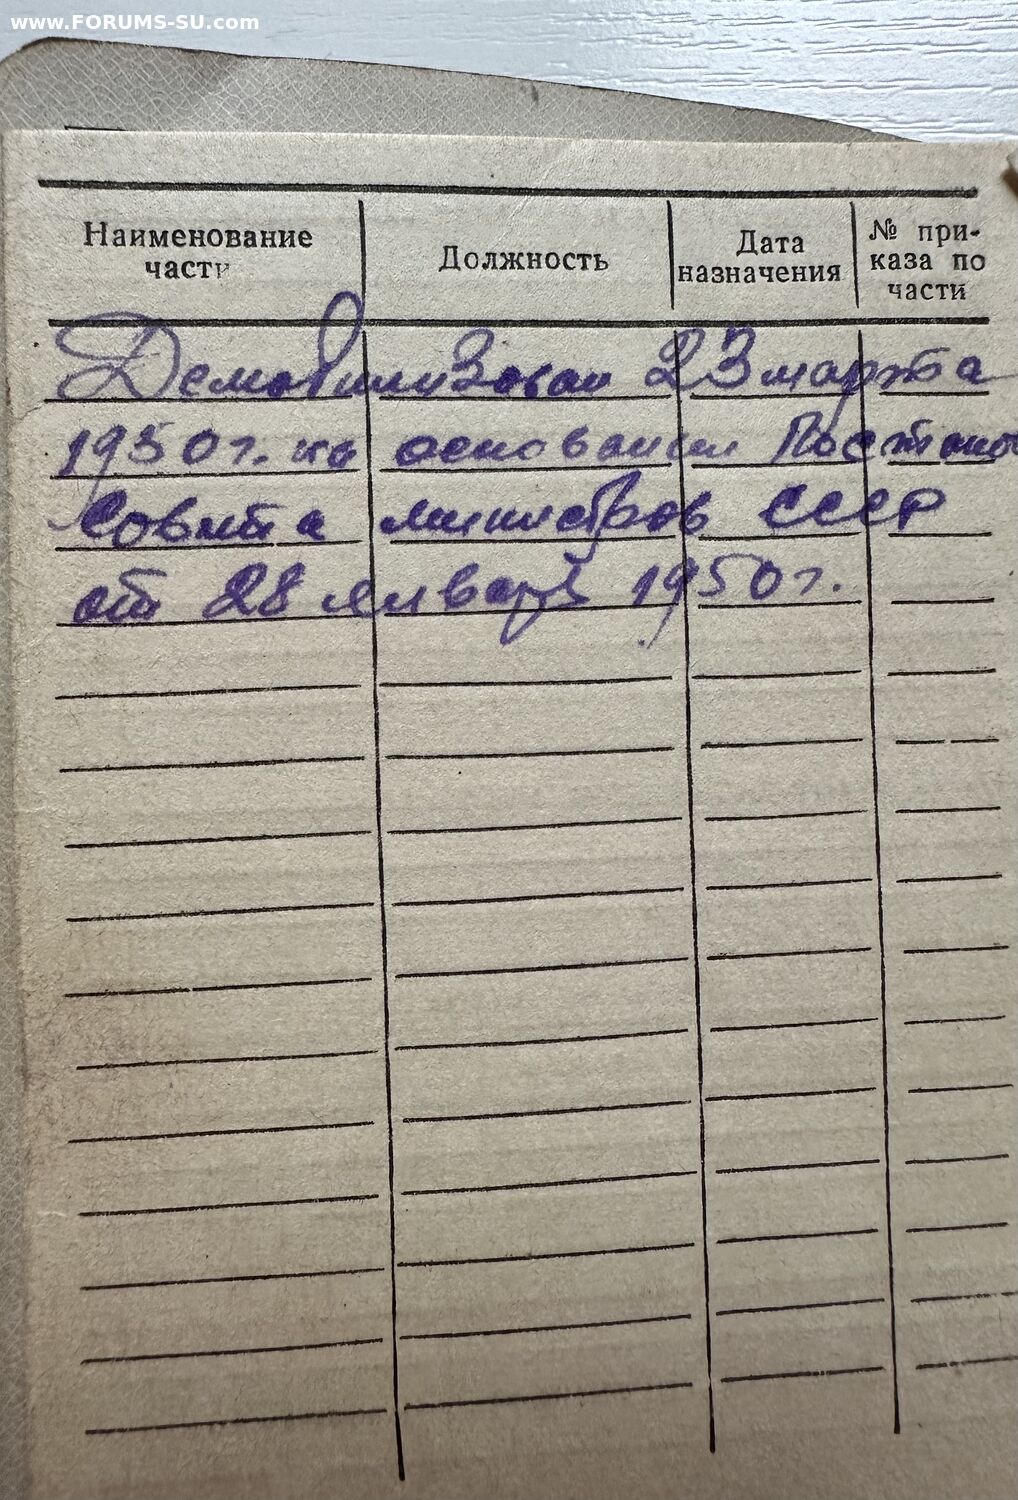 www.FORUMS-SU.com
Наименование части
Должность
Дата назначения
№ при-каза по части
Демобилизован 23 марта
1950 г. на основании Постанов
Совета министров СССР
от 28 января 1950 г.